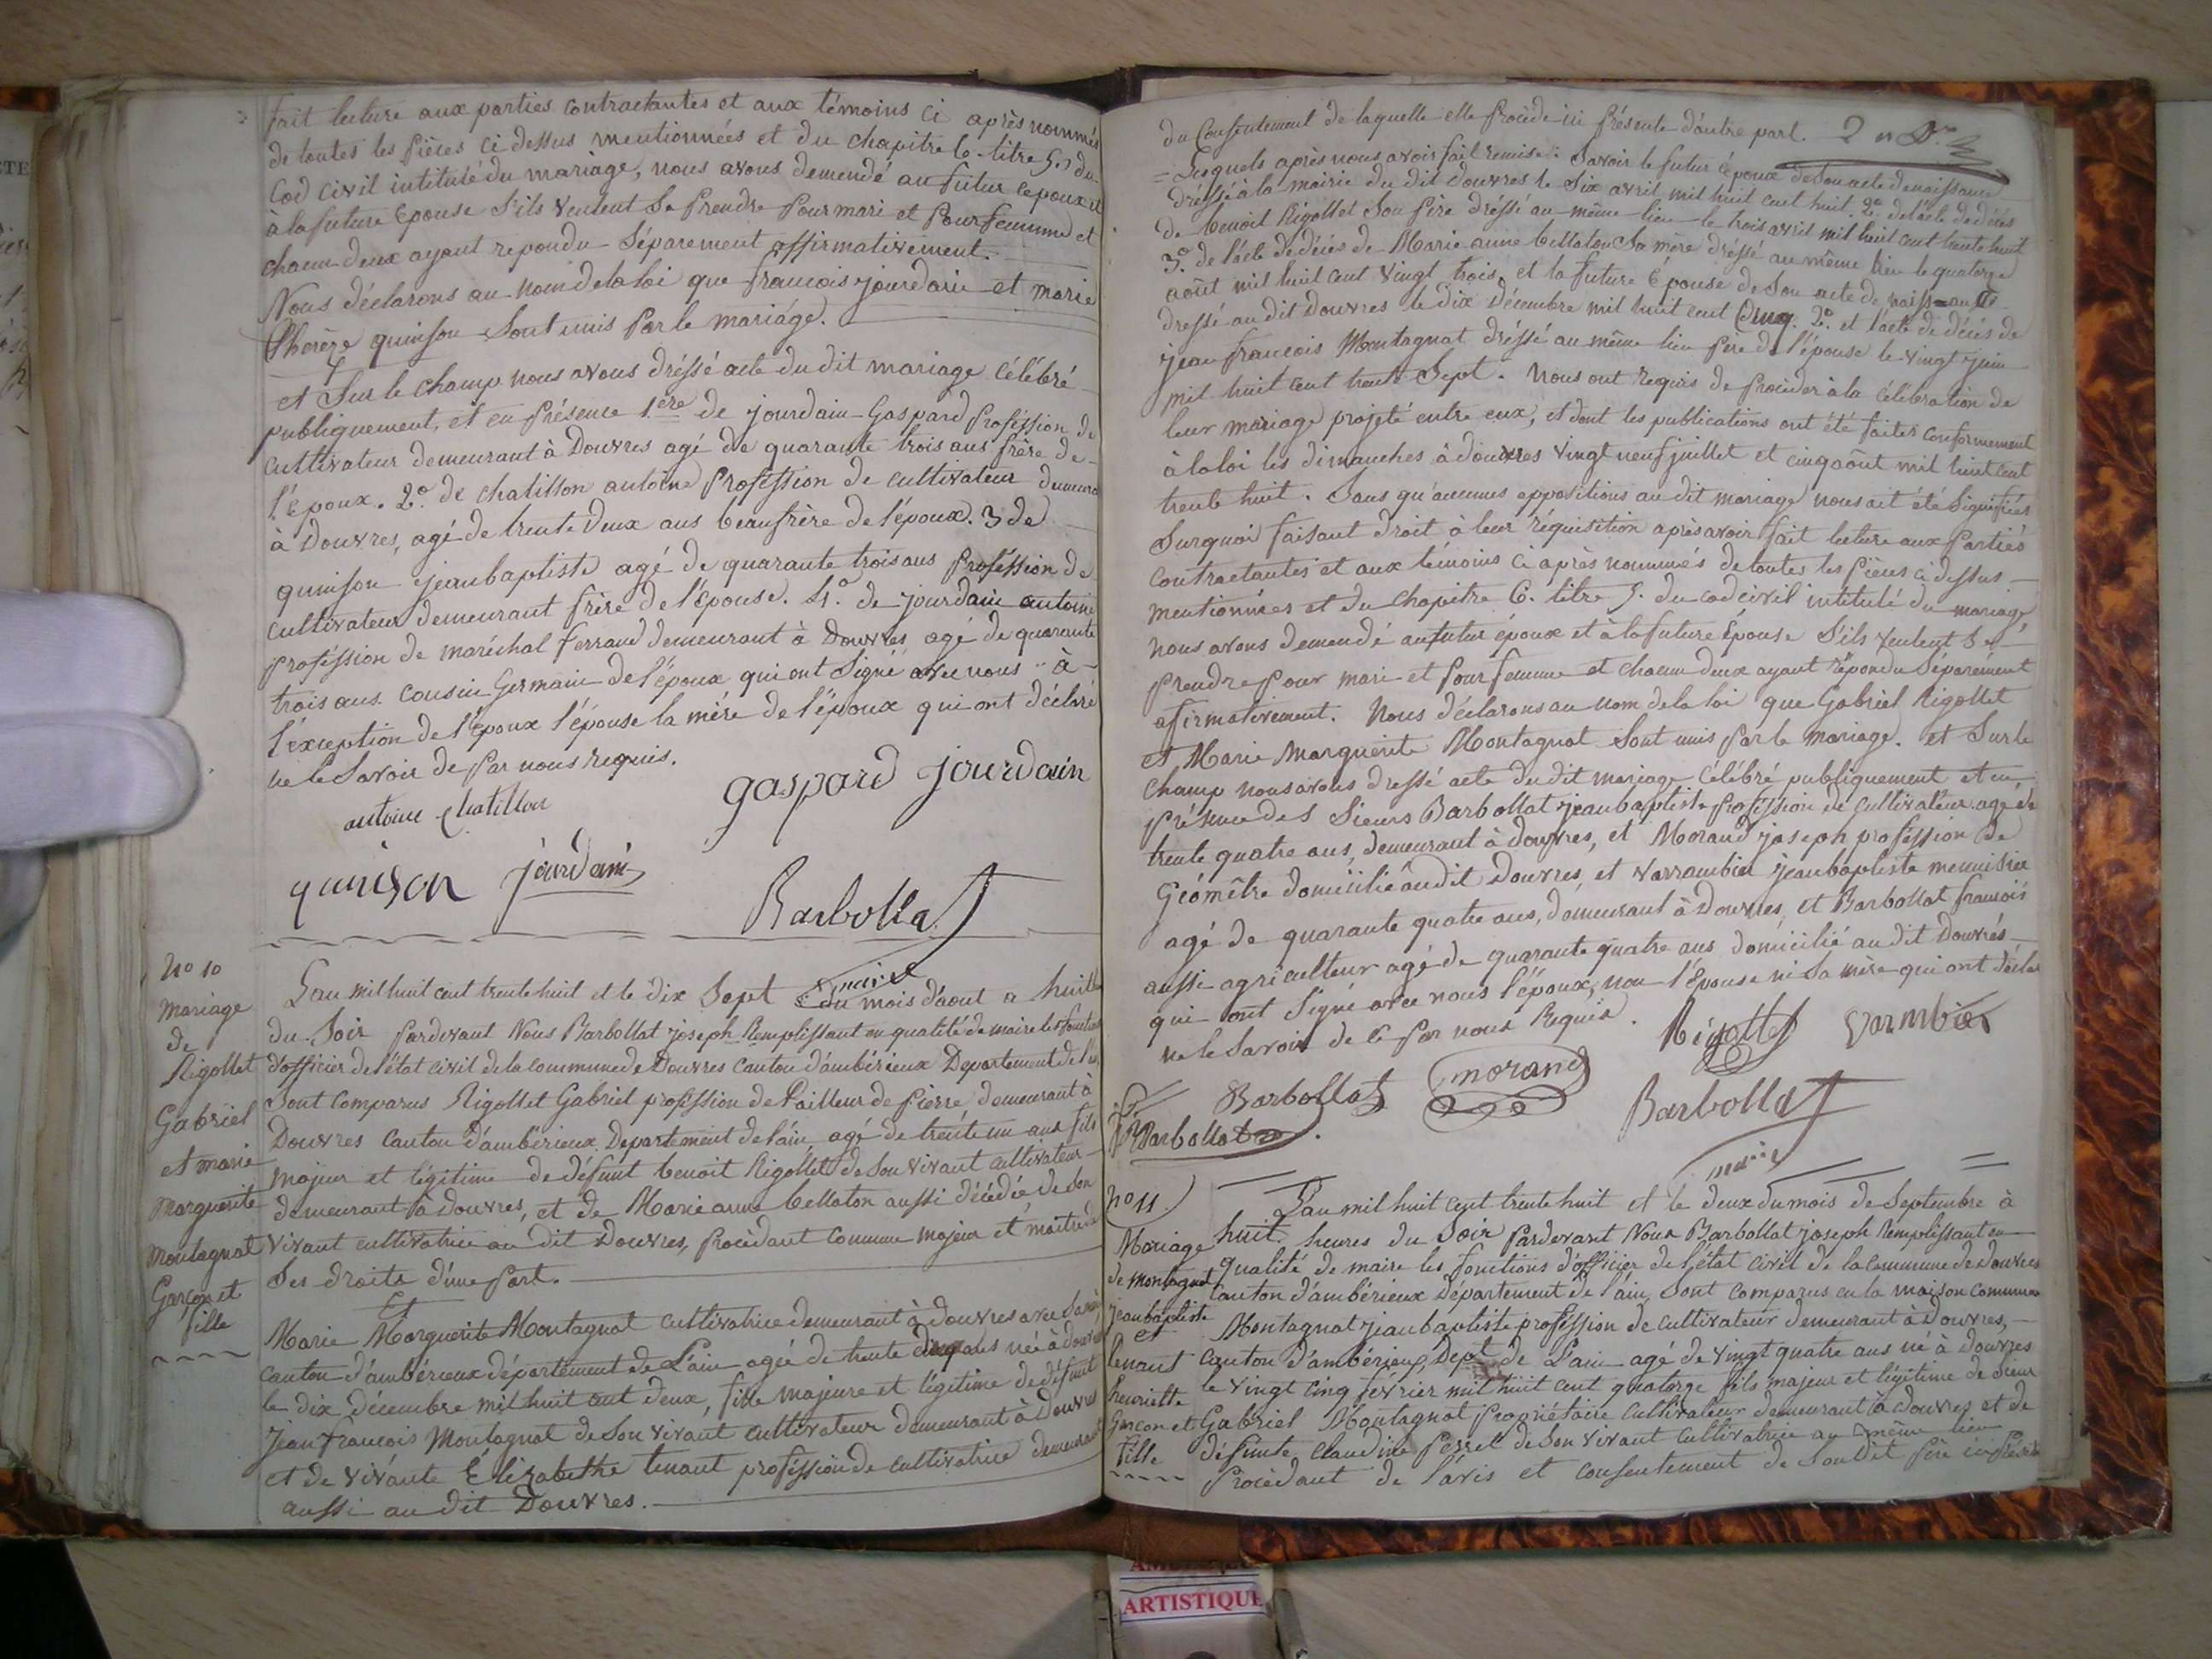 fait lecture aux parties contractantes et aux témoins ci après nommés
de toutes les pièces ci dessus mentionnées et du chapitre 6. titre 5. du
Cod civil intitulé du mariage, nous avons demendé au futur epoux et
à la future Epouse S'ils veulent Se Prendre Pour mari et Pour femme et
chacun deux ayant repondu Séparement affirmativement.
Nous déclarons au nom de la loi que francois jourdain et marie
Thérèze quinson Sont unis Par le mariage.
et Sur le champ nous avons dréssé acte du dit mariage célébré
publiquement, et en Présence 1.ere de jourdain Gaspard Proféssion de
cultivateur demeurant à Douvres agé de quarante trois ans frère de
l'époux. 2.° de chatillon antoine Proféssion de cultivateur demeurant
à Douvres, agé de trente deux ans beaufrère de l'époux. 3 de
quinson jeanbaptiste agé de quarante trois ans Proféssion de
cultivateur demeurant frère de l'épouse. 4.° de jourdain antoine
proféssion de maréchal ferrand demeurant à Douvres agé de quarante
trois ans. cousin Germain de l'époux qui ont Signé avec nous à
l'éxception de l'époux l'épouse la mère de l'époux qui ont déclaré
ne le Savoir de Par nous Requis.
antoine chatillon
gaspard jourdain
quinson jourdain
Barbollat
maire
N° 10
Mariage
de
Rigollet
Gabriel
et marie
Marguerite
Montagnat
Garçon et
fille
L'an mil huit cent trente huit et le dix Sept du mois d'aout a huit
du Soir Pardevant Nous Barbollat joseph Remplissant en qualité de maire les fonctions
d'officier de l'état civil de la commune de Douvres canton d'ambérieux Departement de l'ain
Sont comparus Rigollet Gabriel proféssion de Tailleur de Pierre demeurant à
Douvres canton d'ambérieux Departement de l'ain agé de trente un ans fils
majeur et légitime de défunt benoit Rigollet de Son vivant cultivateur
demeurant à Douvres, et de Marie anne bellaton aussi décédée de Son
vivant cultivatrice au dit Douvres, Procèdant comme majeur et maitre de
Ses droits d'une Part.
Et
Marie Marguerite Montagnat cultivatrice demeurant à douvres avec Sa mère
canton d'ambérieux département de L'ain agée de trente cinq ans née à douvres
le dix décembre mil huit cent deux, fille majeure et légitime de défunt
Jean francois Montagnat de Son vivant cultivateur demeurant à Douvres
et de vivante Elizabethe tenant proféssion de cultivatrice demeurant
aussi au dit Douvres.
du Consentement de laquelle elle Procède ici Présente d'autre part.
Lesquels après nous avoir fait remise: Savoir le futur époux de Son acte de naissance
dréssé à la mairie du dit Douvres le Six avril mil huit cent huit. 2.° de l'acte de décès
de benoit Rigollet Son Père dréssé au même lieu le trois avril mil huit cent trente huit
3.° de l'acte de décès de Marie anne bellaton Sa mère dréssé au même lieu le quatorze
août mil huit cent vingt trois, et la future épouse de Son acte de naissance
dressé au dit Douvres le dix décembre mil huit cent Cinq. 2.° et l'acte de décès de
jean francois Montagnat dréssé au même lieu Pere de l'épouse le vingt juin
mil huit cent trente Sept. Nous ont Requis de Procéder à la célébration de
leur mariage projeté entre eux, et dont les publications ont été faites conformement
à la loi les dimanches à douvres vingt neuf juillet et cinq août mil huit cent
trente huit. Sans qu'aucunes oppositions au dit mariage nous ait été Signifiées
Surquoi faisant droit à leur réquisition après avoir fait lecture aux Parties
contractantes et aux témoins ci après nommés de toutes les Pièces ci dessus
mentionnées et du chapitre 6. titre 5. du cod civil intitulé du mariage,
nous avons demendé au futur époux et à la future Epouse S'ils veulent Se
Prendre Pour mari et Pour femme et chacun deux ayant répondu Séparement
afirmativement. Nous déclarons au nom de la loi que Gabriel Rigollet
et Marie Marguerite Montagnat Sont unis Par le mariage. et Sur le
champ nous avons dressé acte du dit mariage célébré publiquement et en
présence des Sieurs Barbollat jeanbaptiste Proféssion de cultivateur agé de
trente quatre ans, demeurant à douvres, et Morand joseph proféssion de
Géomètre domicilié audit Douvres, et varrambier jeanbaptiste menuisier
agé de quarante quatre ans, demeurant à Douvres, et Barbollat francois
aussi agriculteur agé de quarante quatre ans domicilié au dit Douvrés
qui ont Signé avec nous l'époux, non l'épouse ni Sa mère qui ont déclaré
ne le Savoir de ce Par nous Requis.
Rigollet varmbier
Barbollat morand
Barbollat
Barbollat
maire
N° 11
Mariage
de Montagnat
jeanbaptiste
et
tenant
henriette
Garçon et
fille
L'an mil huit cent trente huit et le deux du mois de Septembre à
huit heures du Soir Pardevant Nous Barbollat joseph Remplissant en
qualité de maire les fonctions d'officier de l'état civil de la commune de douvres
canton d'ambérieux Département de l'ain, Sont comparus en la maison commune
Montagnat jeanbaptiste proféssion de cultivateur demeurant à Douvres,
canton d'ambérieux, Dept de L'ain agé de vingt quatre ans né à Douvres
le vingt cinq février mil huit cent quatorze fils majeur et légitime de Sieur
Gabriel Montagnat Propriétaire cultivateur demeurant à douvres et de
défunte claudine Perret de Son vivant cultivatrice au même lieu
Procèdant de l'avis et consentement de Son dit père ici présent
ARTISTIQUE